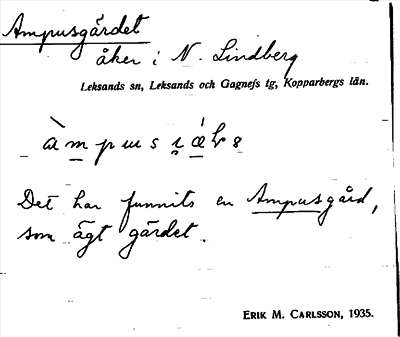 Ampusgärdet
åker i N. Lindberg
Leksands sn, Leksands och Gagnefs tg, Kopparbergs län.
Det har funnits en Ampusgård,
som ägt gärdet.
ERIK M. CARLSSON, 1935.